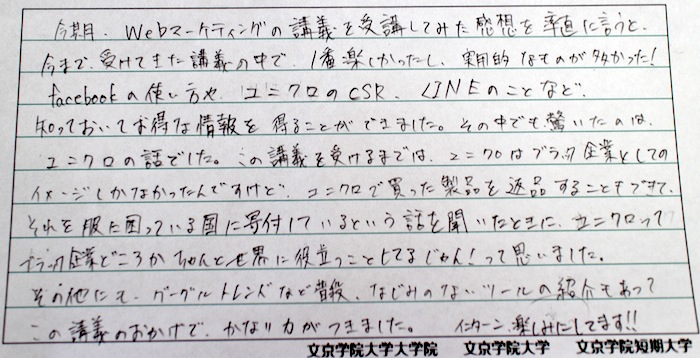 今期、Webマーケティングの講義を受講してみた感想を率直に言うと、
今まで、受けてきた講義の中で、1番楽しかったし、実用的なものが多かった!
facebookの使い方や、ユニクロのCSR、LINEのことなど、
知っておいてお得な情報を得ることができました。その中でも驚いたのは、
ユニクロの話でした。この講義を受けるまでは、ユニクロはブラック企業としての
イメージしかなかったんですけど、ユニクロで買った製品を返品することもできて、
それを服に困っている国に寄付しているという話を聞いたときに、ユニクロって
ブラック企業どころかちゃんと世界に役立つことしてるじゃん!って思いました。
その他にも、グーグルトレンドなど普段、なじみのないツールの紹介もあって
この講義のおかげで、かなり力がつきました。 インターン、楽しみにしてます!!
文京学院大学大学院 文京学院大学 文京学院短期大学